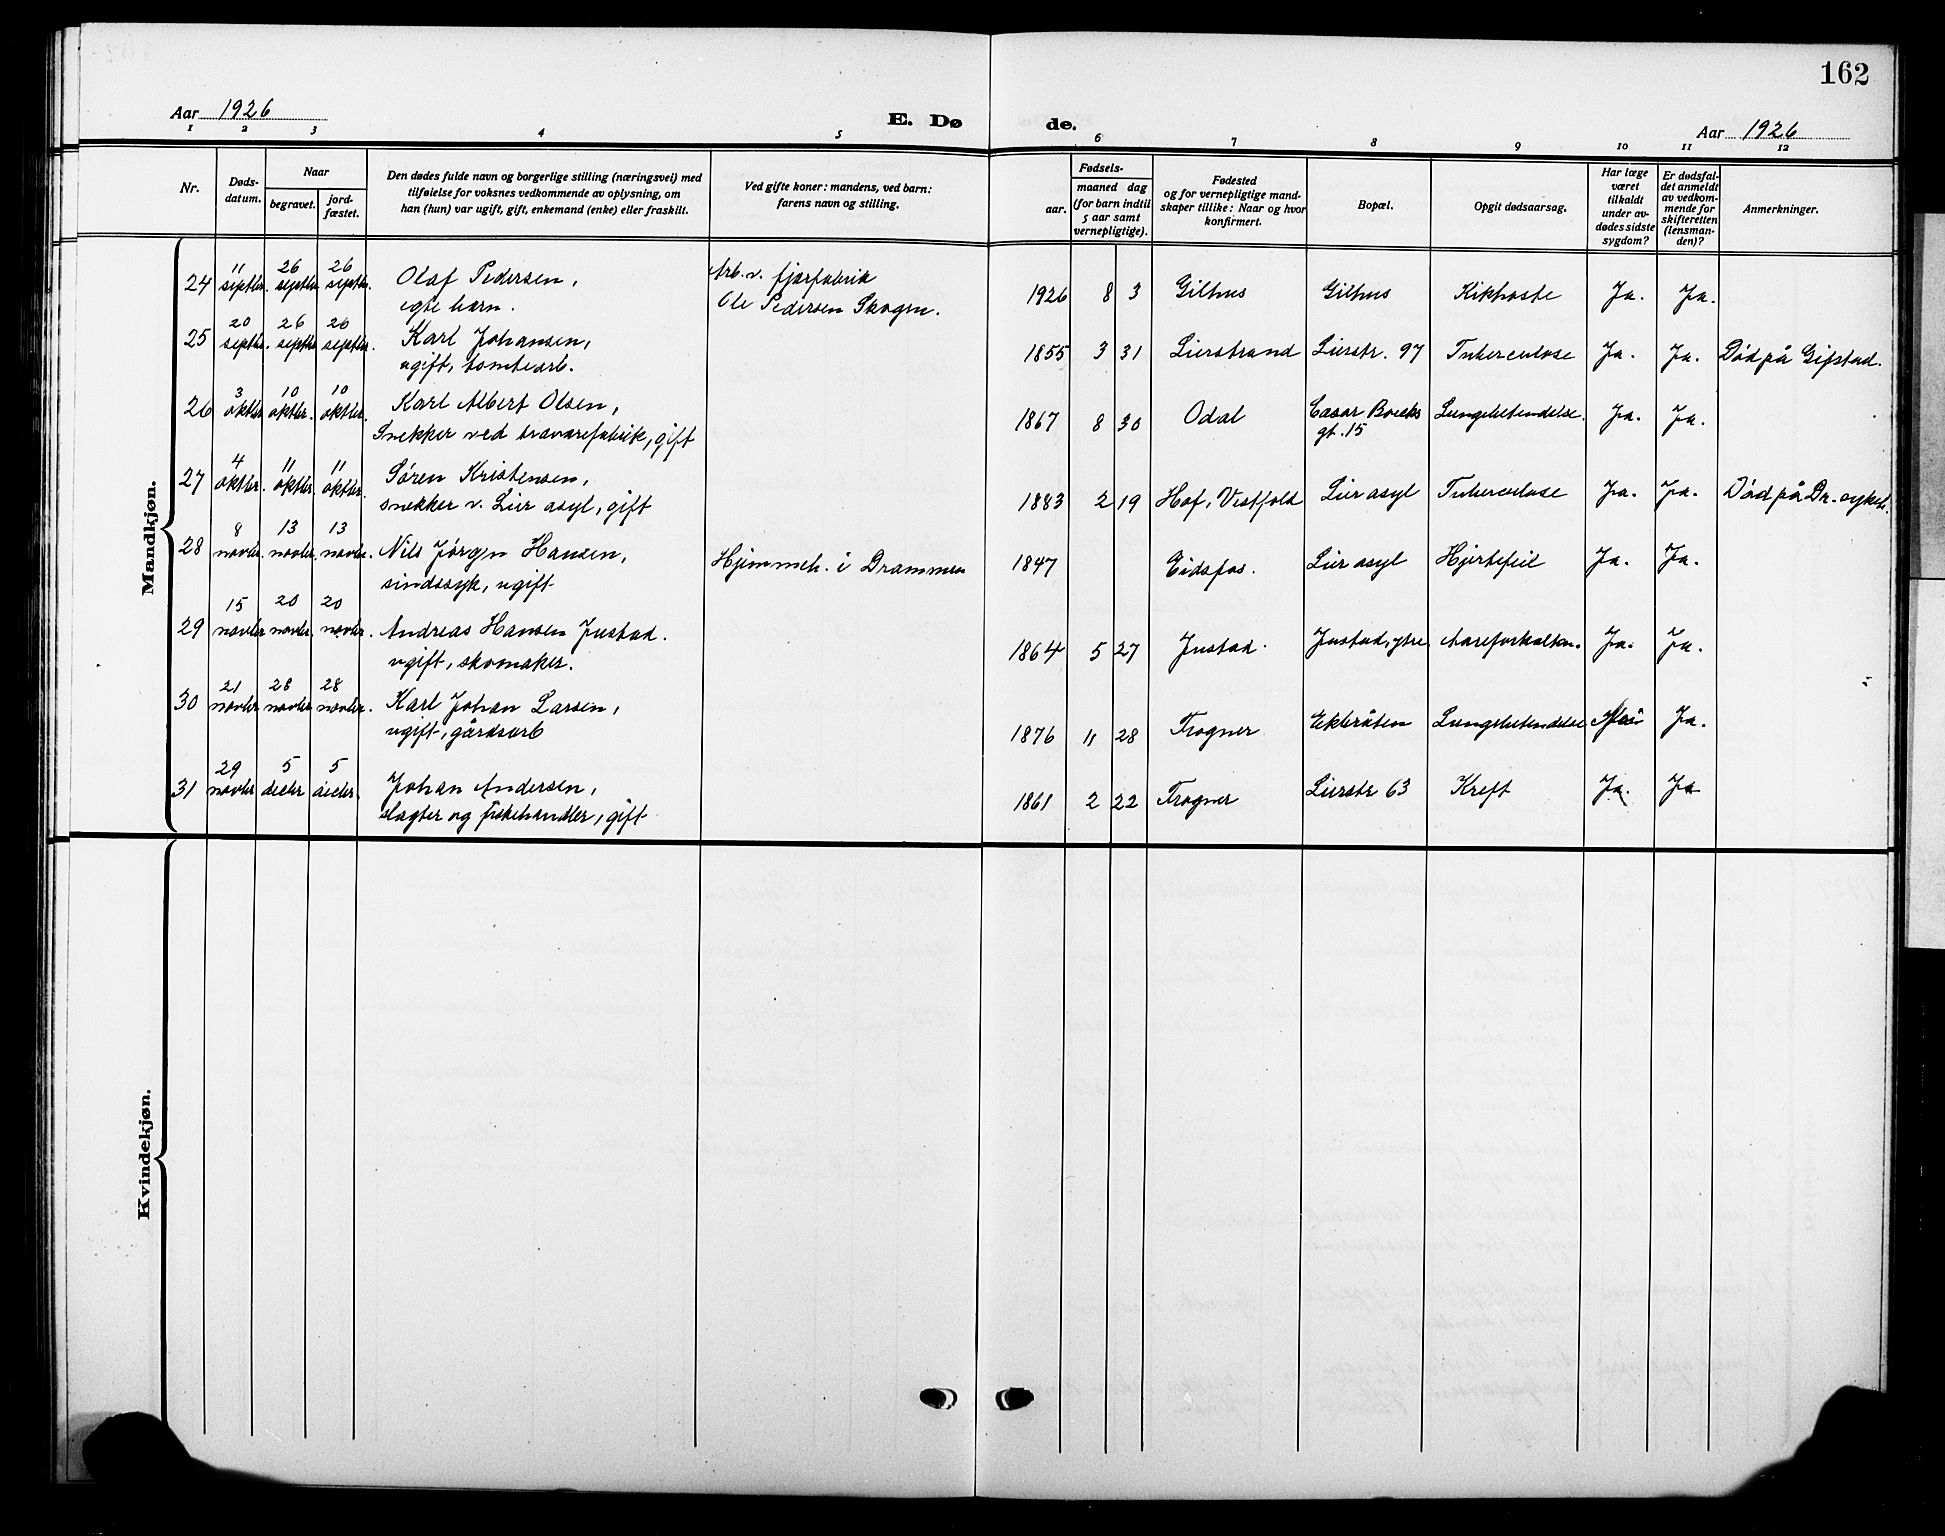 162
Aar 1926
E. Dø de.
Aar 1926
1 2 3 4 5 6 7 8 9 10 11 12
Nr.
Døds-
datum.
Naar
begravet.
jord-
fæstet.
Den dødes fulde navn og borgerlige stilling (næringsvei) med
tilføielse for voksnes vedkommende av oplysning, om
han (hun) var ugift, gift, enkemand (enke) eller fraskilt.
Ved gifte koner: mandens, ved barn:
farens navn og stilling.
Fødsels-
aar.
maaned dag
(for barn indtil
5 aar samt
vernepligtige).
Fødested
og for vernepligtige mand-
skaper tillike: Naar og hvor
konfirmert.
Bopæl.
Opgit dødsaarsag.
Har læge
været
tilkaldt
under av-
dødes sidste
sygdom?
Er dødsfal-
det anmeldt
av vedkom-
mende for
skifteretten
(lensman-
den)?
Anmerkninger.
Mandkjøn.
11 26 26
24 septbr. septbr. septbr. Olaf Pedersen, Arb. v. fjærfabrik
egte barn. Ole Pedersen Skogen. 1926 8 3 Gilhus Gilhus Kikhoste Ja. Ja.
20 26 26
25 septbr. septbr. septbr. Karl Johansen,
ugift, tomtearb. 1855 3 31 Lierstrand Lierstr. 97 Tuberculose Ja. Ja. Død på Gifstad.
3 10 10
26 oktbr. oktbr. oktbr. Karl Albert Olsen,
Snekker ved trævarefabrik, gift 1867 8 30 Odal Cæsar Boecks Lungebetendelse. Ja. Ja.
gt. 15
4 11 11
27 oktbr. oktbr. oktbr. Søren Kristensen,
snekker v. Lier asyl, gift 1883 2 19 Hof, Vestfold Lier asyl Tuberculose Ja. Ja. Død på Dr. sykeh.
8 13 13
28 novbr. novbr. novbr. Nils Jørgen Hansen,
sindssyk, ugift Hjemmeh. i Drammen 1847 Eidsfos. Lier asyl Hjertefeil Ja. Ja.
15 20 20
29 novbr. novbr. novbr. Andreas Hansen Justad.
ugift, skomaker. 1864 5 27 Justad. Justad, ytre. Aareforkalkn. Ja. Ja.
21 28 28
30 novbr. novbr. novbr. Karl Johan Larsen,
ugift, gårdsarb 1876 11 28 Frogner Ekeråsen Lungebetendelse Nei Ja.
29 5 5
31 novbr decbr decbr. Johan Andersen,
slagter og fiskehandler, gift 1861 2 22 Frogner Lierstr 63 Kreft Ja. Ja
Kvindekjøn.